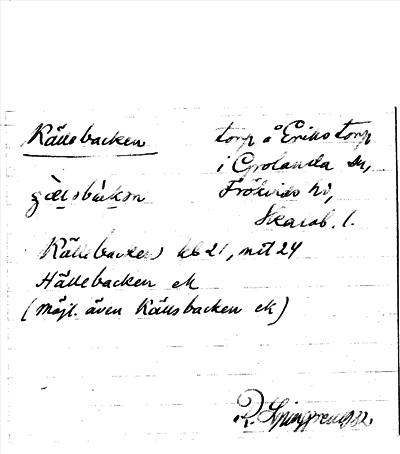 Källsbacken
torp å Erikstorp
i Grolanda sn,
Frökinds hd,
Skarab. l.
Källebacken hb 21, mtl 24
Hällebacken ek
(möjl. även Källsbacken ek)
R. Ljunggren 1932.